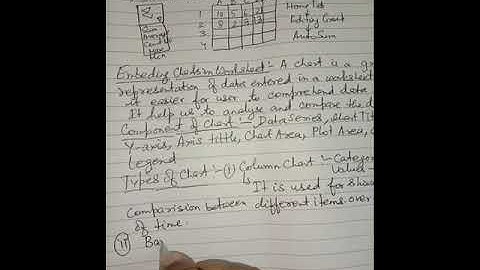 A B C
Σ
Sum
Average
Count
Max
Min
1 10 5 6 21
2 8 2 3 13
3
4
Home Tab
Editing Count
AutoSum
Embeding Charts in Worksheet:- A chart is a gr
representation of data entered in a worksheet
it easier for user to comprehend data
It help us to analyse and compare the d
Component of Chart:- Data Series, Chart Tit
Y-axis, Axis tittle, Chart Area, Plot Area,
Legend
Types of Chart:- (i) Column Chart:- Categor
Value-
It is used for show
Comparision between different items over
of time.
(ii) Ba